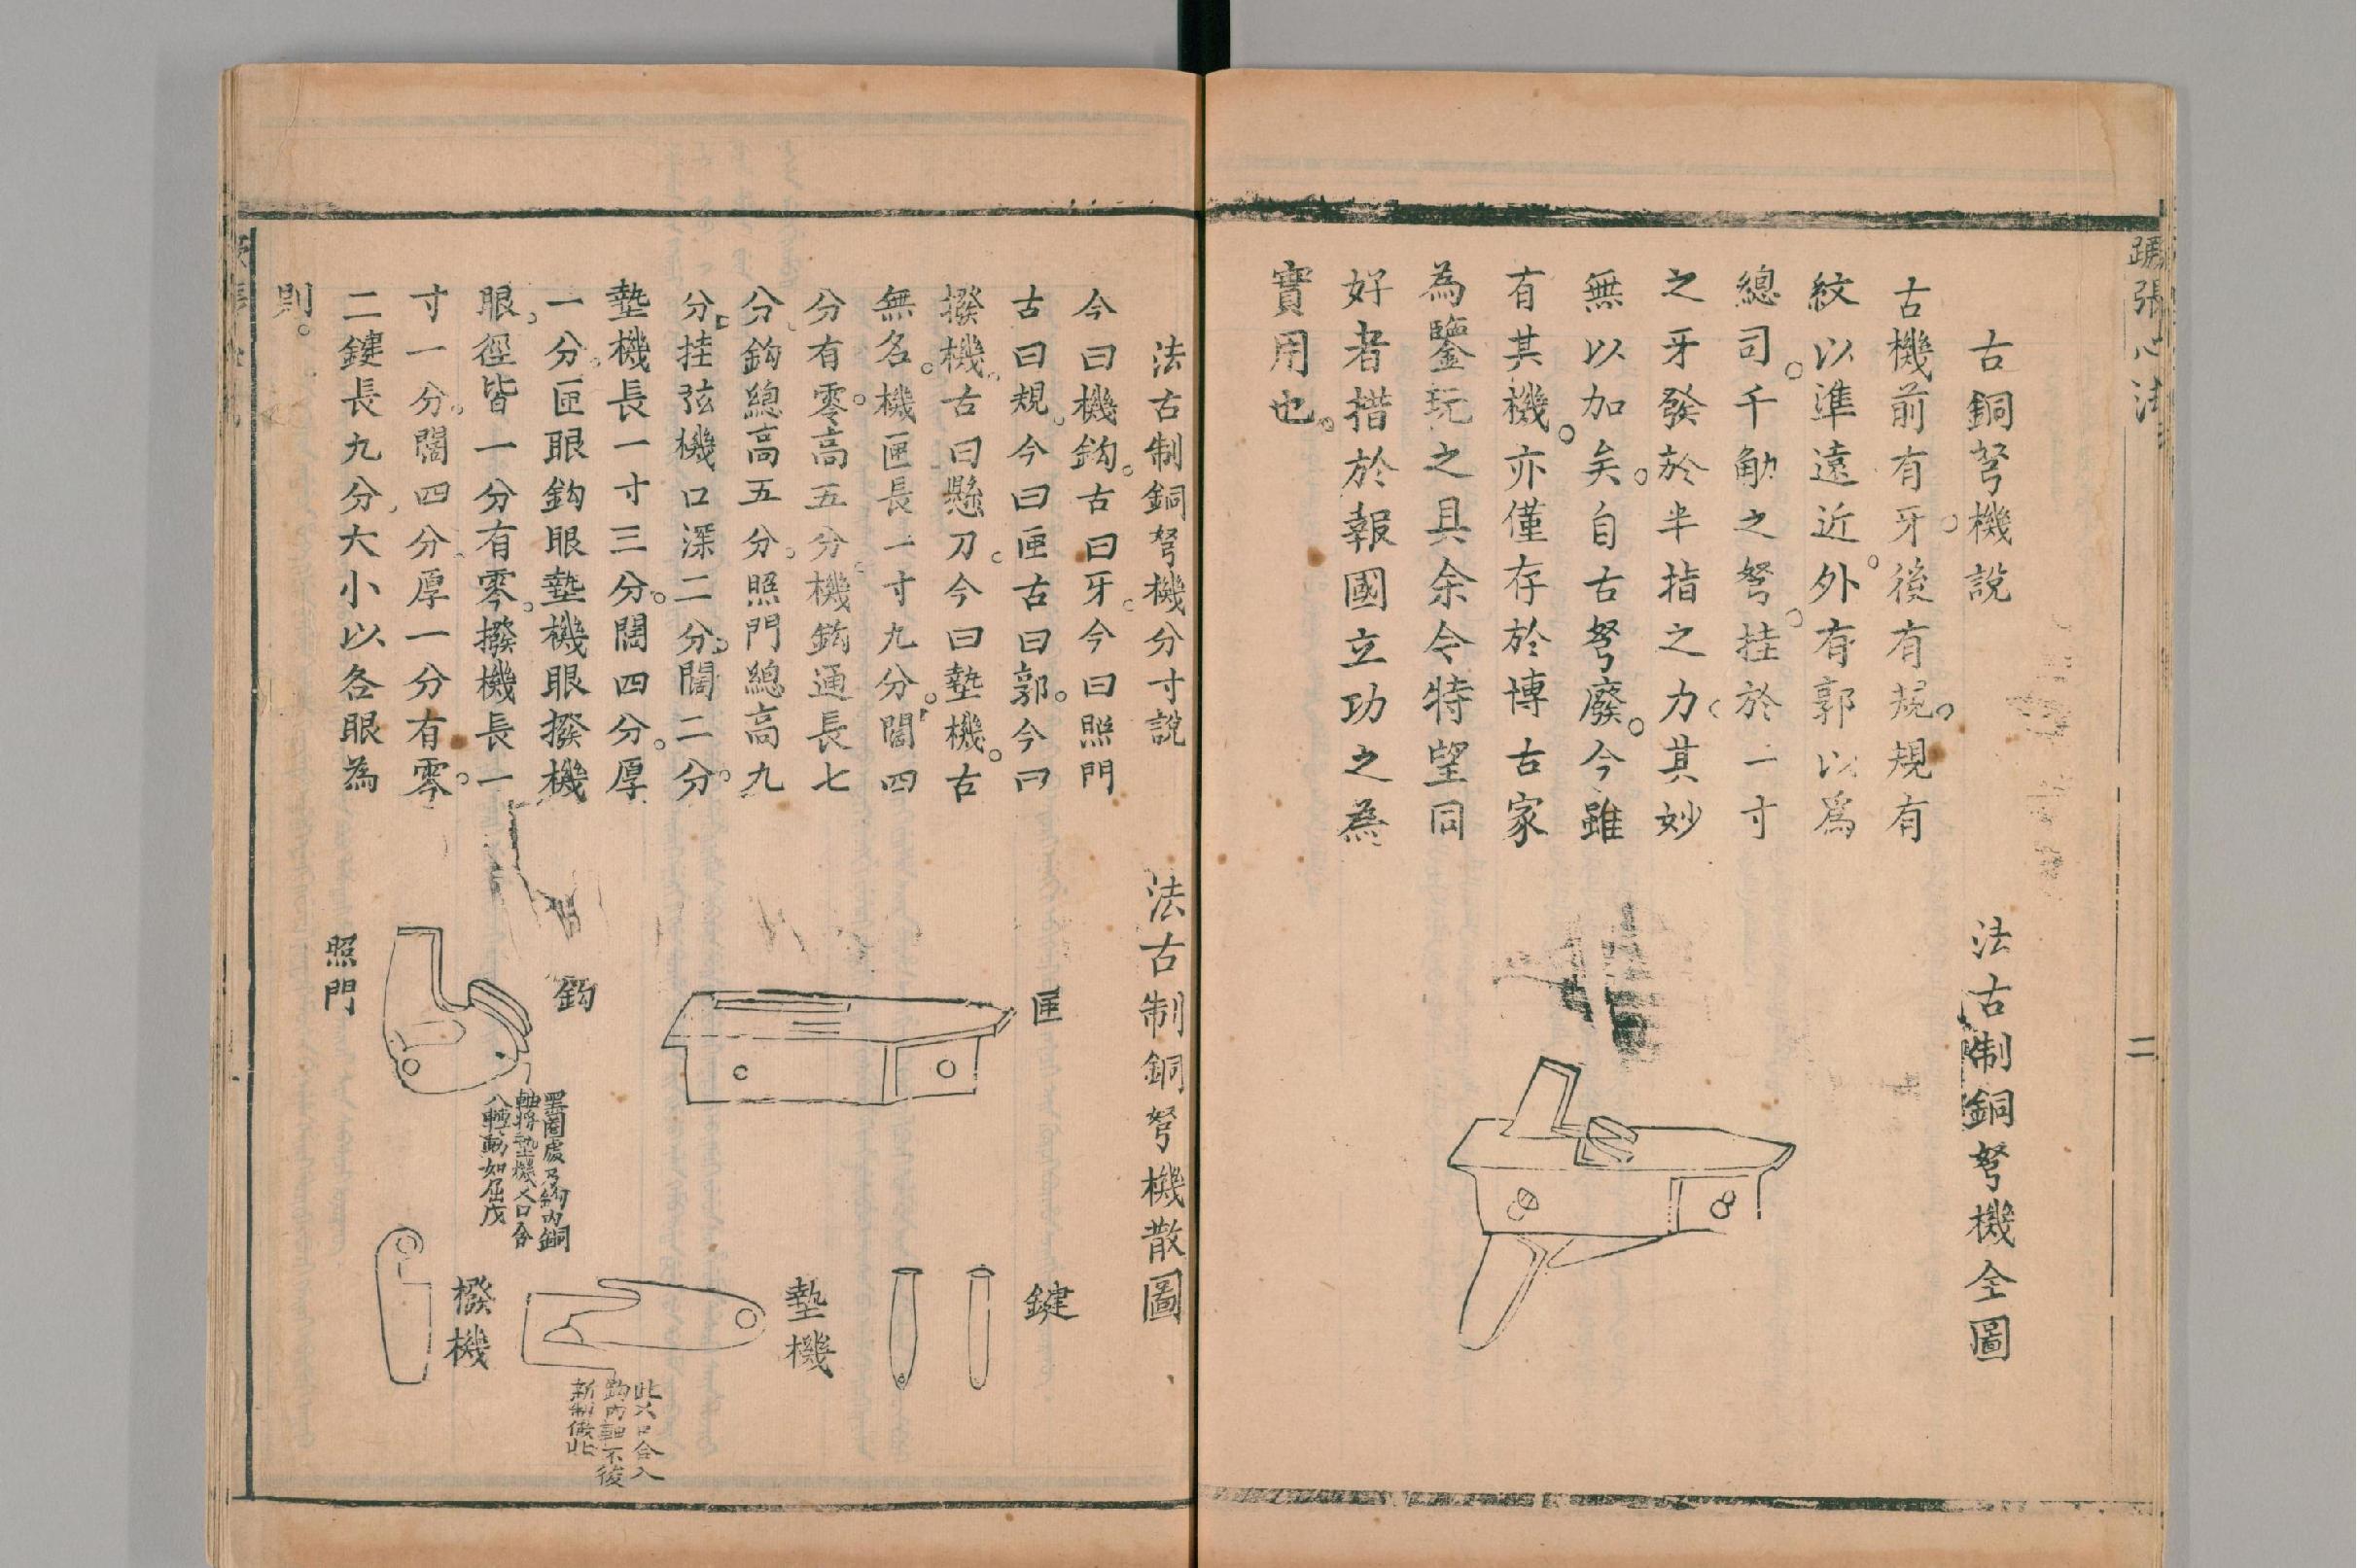 蹶張心法
二
古銅弩機說
古機前有牙後有規規有
紋以準遠近外有郭以為
總司千觔之弩挂於一寸
之牙發於半指之力其妙
無以加矣自古弩廢今雖
有其機亦僅存於博古家
為鑒玩之具余今特望同
好者措於報國立功之為
實用也
法古制銅弩機全圖
法古制銅弩機分寸說
今曰機鈎古曰牙今曰照門
古曰規今曰匣古曰郭今曰
撥機古曰懸刀今曰墊機古
無名機匣長一寸九分闊四
分有零高五分機鈎通長七
分鈎總高五分照門總高九
分挂弦機口深二分闊二分
墊機長一寸三分闊四分厚
一分匣眼鈎眼墊機眼撥機
眼徑皆一分有零撥機長一
寸一分闊四分厚一分有零
二鍵長九分大小以各眼為
則
法古制銅弩機散圖
匣
鈎
照門
黑圈處乃鈎內銅
軸將墊機乂口合
入轉動如屈戌
鍵
墊機
此乂口合入
鈎內軸不後
新制倣此
撥機